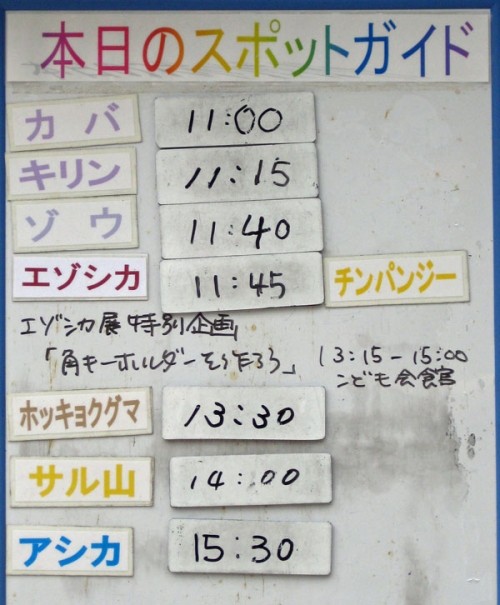 本日のスポットガイド
カバ 11:00
キリン 11:15
ゾウ 11:40
エゾシカ 11:45 チンパンジー
エゾシカ展 特別企画
「角キーホルダーを作ろう」 13:15-15:00
こども会館
ホッキョクグマ 13:30
サル山 14:00
アシカ 15:30